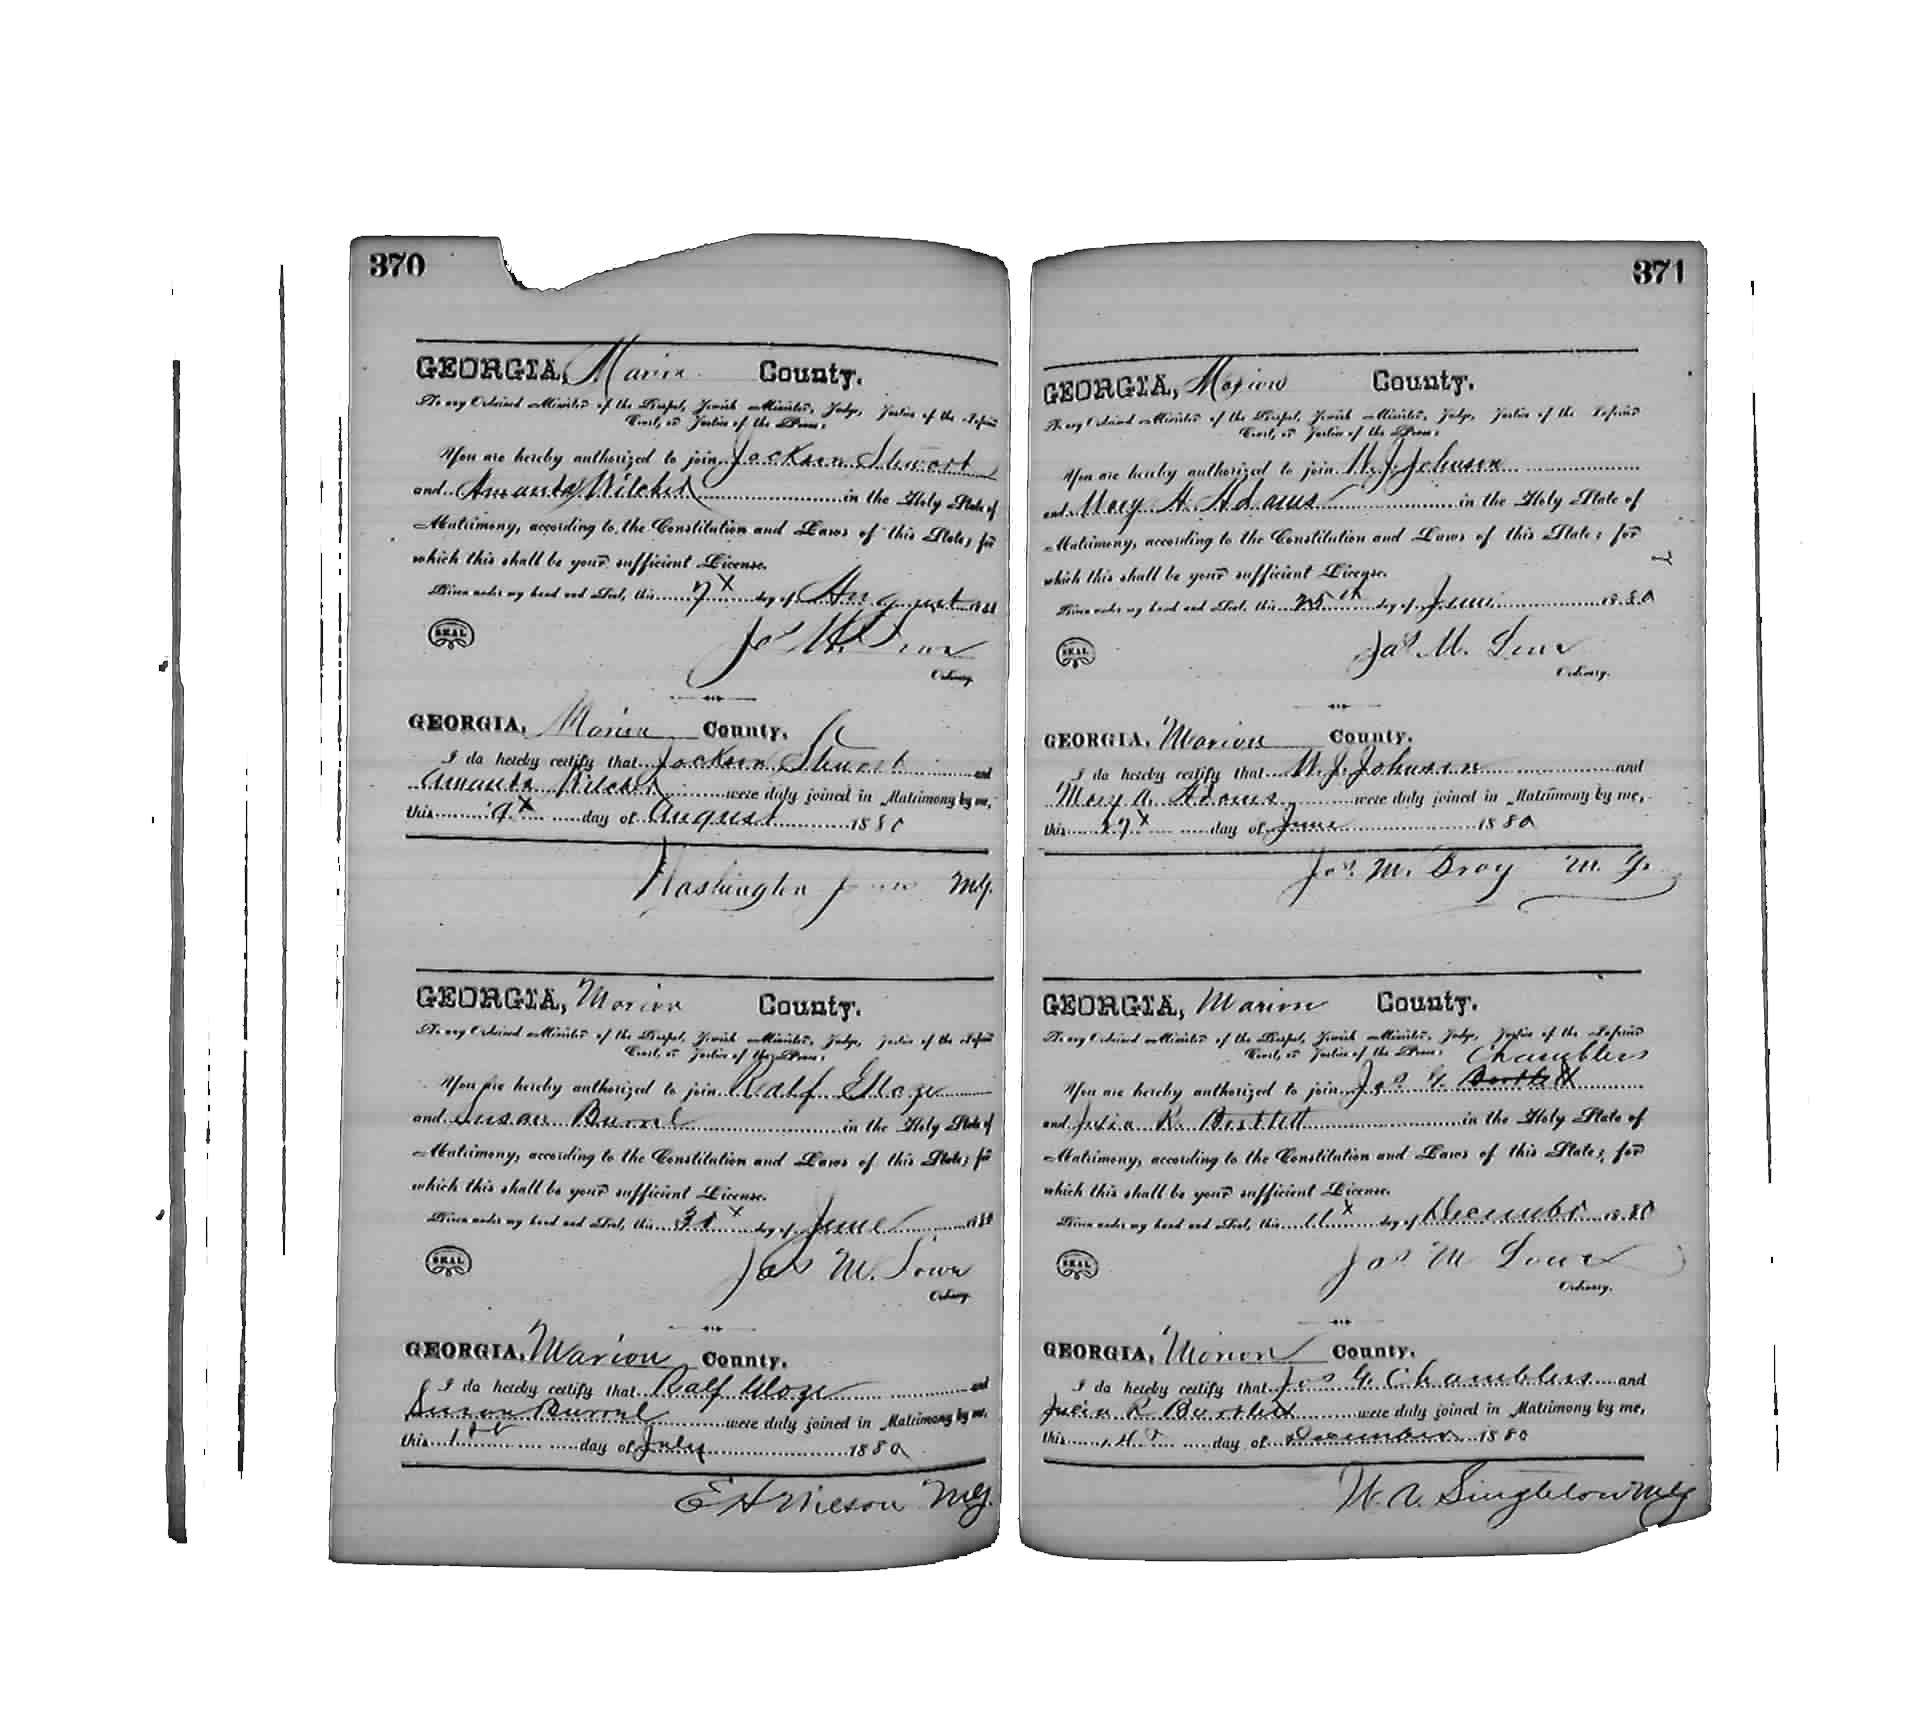 370
GEORGIA, Marion County.
To any Ordained Minister of the Gospel, Jewish Minister, Judge, Justice of the Inferior
Court, or Justice of the Peace:
You are hereby authorized to join Jackson Stewart
and Amanda Wilcher in the Holy State of
Matrimony, according to the Constitution and Laws of this State; for
which this shall be your sufficient License.
Given under my hand and Seal, this 7 day of August 188
SEAL
Jas M. Lowe
Ordinary.
GEORGIA, Marion County.
I do hereby certify that Jackson Stewart and
Amanda Wilcher were duly joined in Matrimony by me,
this 9 day of August 1880
Washington Jones M.G.
GEORGIA, Marion County.
To any Ordained Minister of the Gospel, Jewish Minister, Judge, Justice of the Inferior
Court, or Justice of the Peace:
You are hereby authorized to join Ralf
and Susan Burrel in the Holy State of
Matrimony, according to the Constitution and Laws of this State; for
which this shall be your sufficient License.
Given under my hand and Seal, this day of June 1880
SEAL
Jas M. Lowe
Ordinary.
GEORGIA, Marion County.
I do hereby certify that Ralf and
Susan Burrel were duly joined in Matrimony by me,
this 1st day of July 1880
E H Wilson M.G.
371
GEORGIA, Marion County.
To any Ordained Minister of the Gospel, Jewish Minister, Judge, Justice of the Inferior
Court, or Justice of the Peace:
You are hereby authorized to join W. J. Johnson
and Mary A. Adams in the Holy State of
Matrimony, according to the Constitution and Laws of this State; for
which this shall be your sufficient License.
Given under my hand and Seal, this 25th day of June 1880
SEAL
Jas M. Lowe
Ordinary.
GEORGIA, Marion County.
I do hereby certify that W. J. Johnson and
Mary A. Adams were duly joined in Matrimony by me,
this 27 day of June 1880
Jas. M. Gray M. G.
GEORGIA, Marion County.
To any Ordained Minister of the Gospel, Jewish Minister, Judge, Justice of the Inferior
Court, or Justice of the Peace:
Chambliss
You are hereby authorized to join Jas G. Bartlett
and Julia R. Bartlett in the Holy State of
Matrimony, according to the Constitution and Laws of this State; for
which this shall be your sufficient License.
Given under my hand and Seal, this 11 day of December 1880
SEAL
Jas M Lowe
Ordinary.
GEORGIA, Marion County.
I do hereby certify that Jas G. Chambliss and
Julia R Bartlett were duly joined in Matrimony by me,
this day of December 1880
W. A. Singleton M G